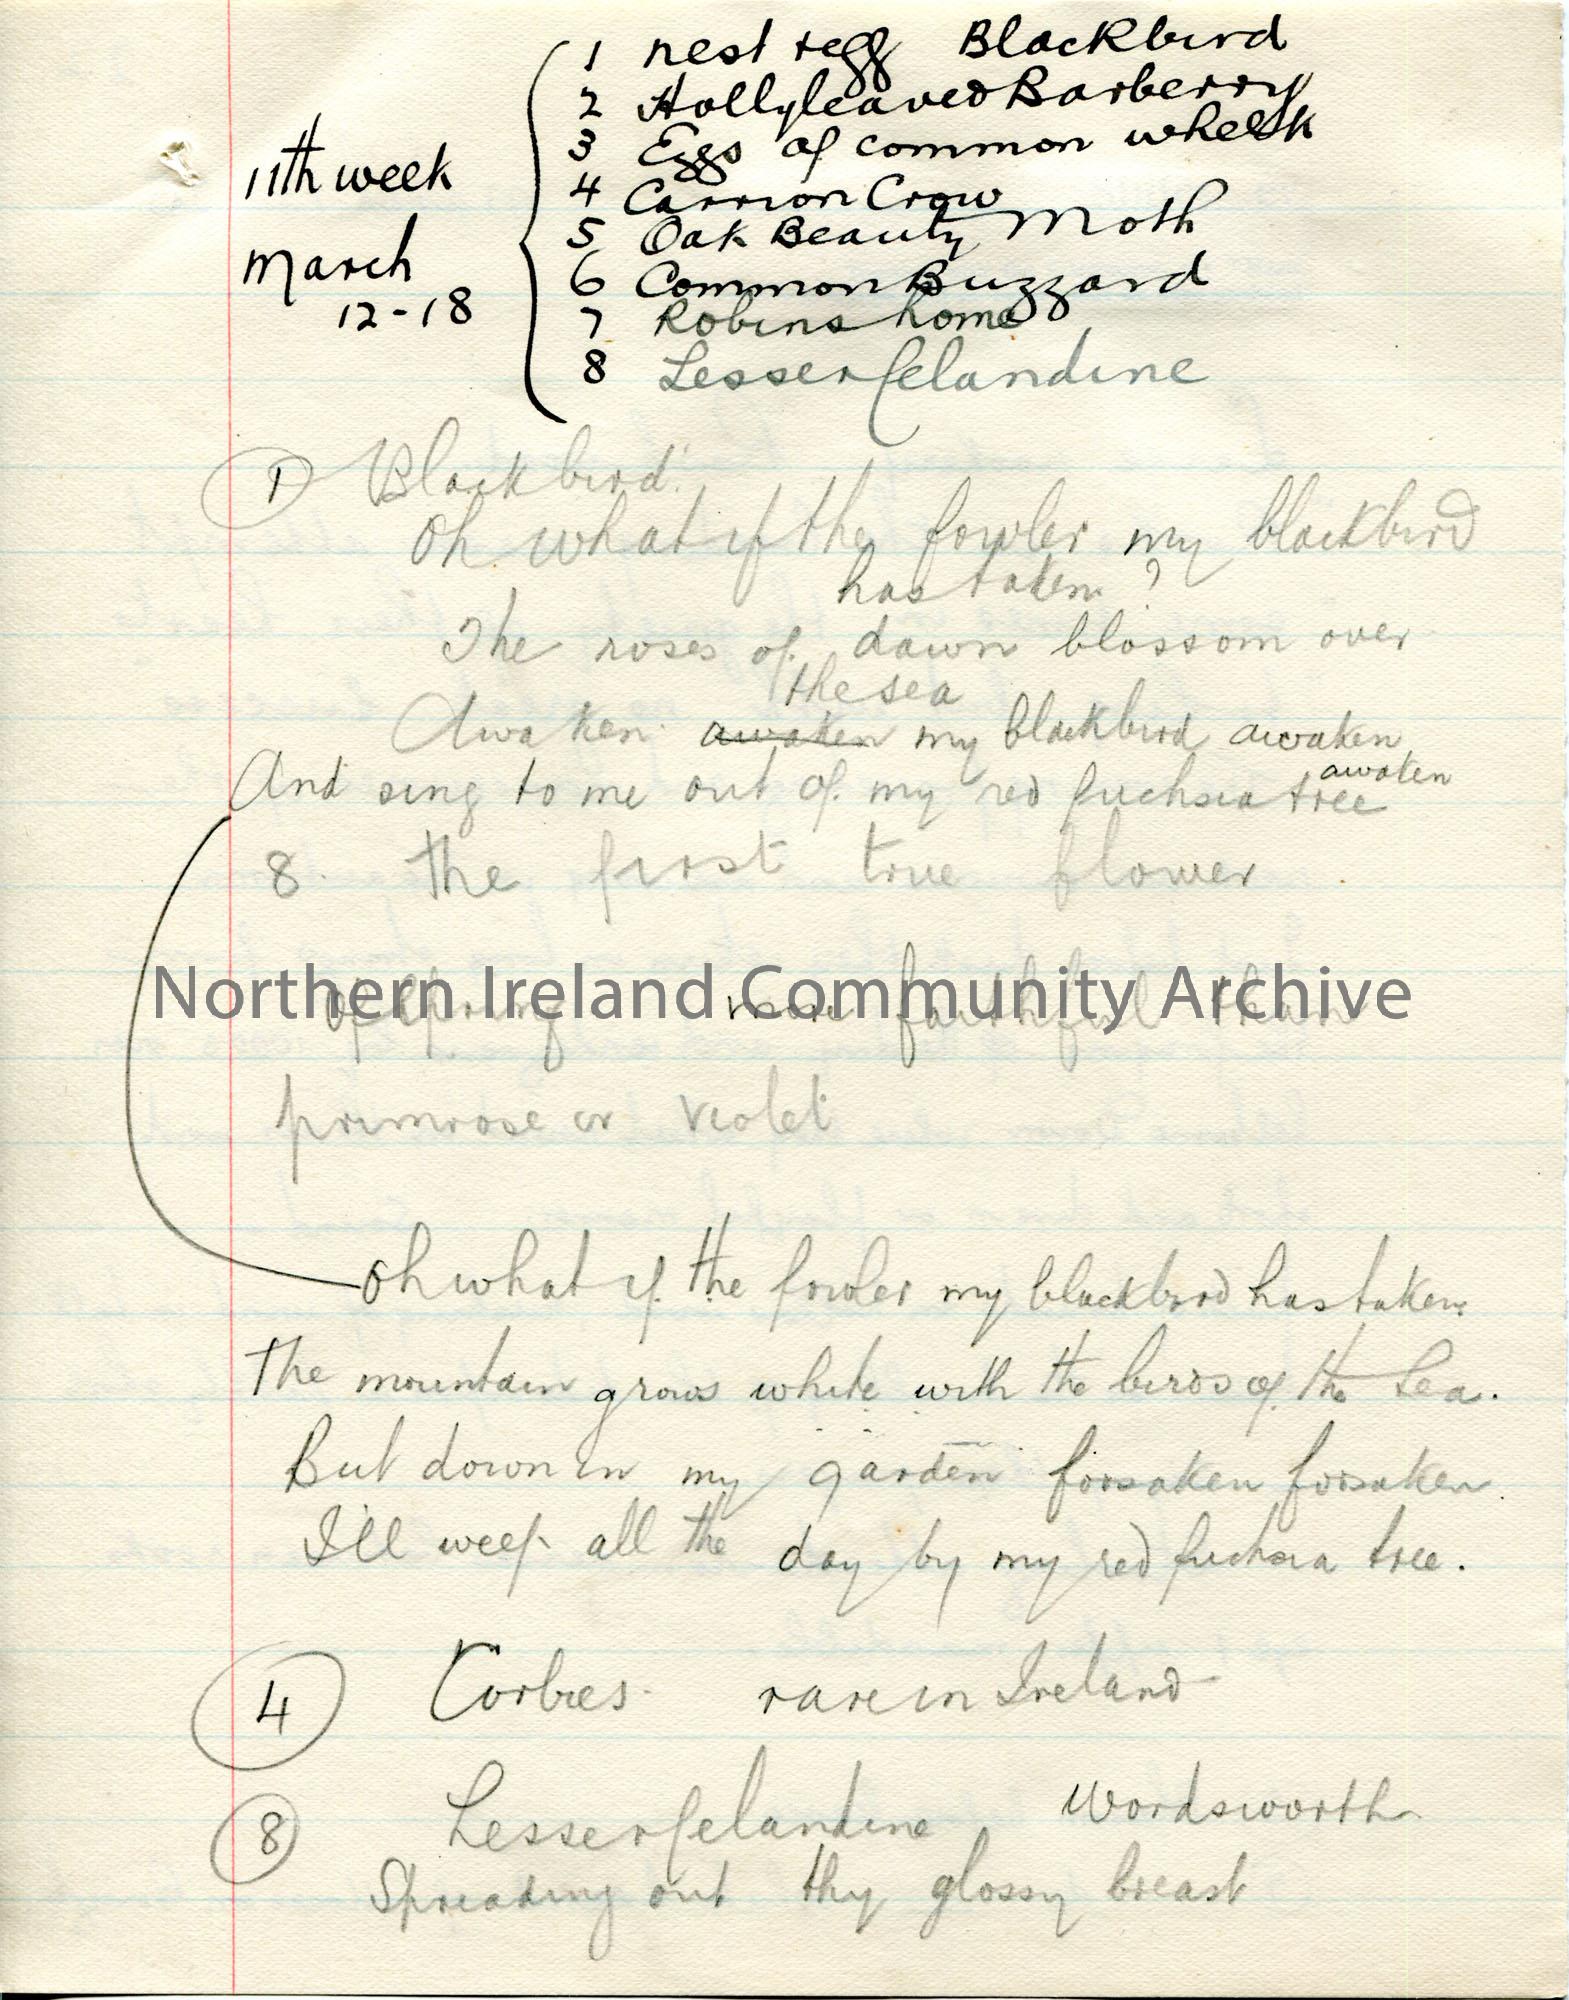 11th week
March
12-18
1 nest & egg Blackbird
2 Hollyleaved Barberry
3 Eggs of common whelk
4 Carrion Crow
5 Oak Beauty Moth
6 Common Buzzard
7 Robins home
8 Lesser Celandine
1 Blackbird
Oh what if the fowler my blackbird
has taken?
The roses of dawn blossom over
the sea
Awaken awaken my blackbird awaken
awaken
And sing to me out of my red fuchsia tree
8. The first true flower
Northern Ireland Community Archive
of spring more faithful than
primrose or violet
Oh what if the fowler my blackbird has taken
The mountain grows white with the birds of the Sea.
But down in my garden forsaken forsaken
I'll weep all the day by my red fuchsia tree.
4 Corbies rare in Ireland
8 Lesser Celandine Wordsworth
Spreading out thy glossy breast